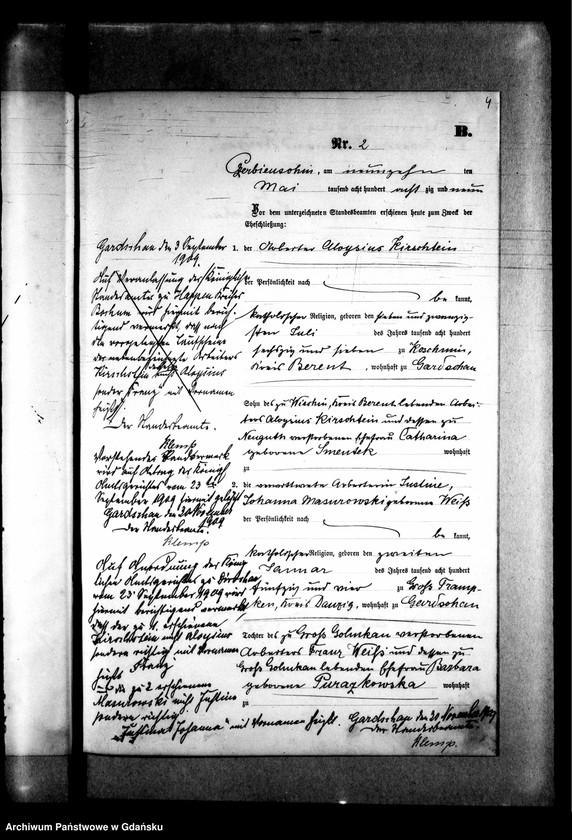 4
B.
Nr. 2
am neunzehn ten
Mai tausend acht hundert acht zig und neun
Vor dem unterzeichneten Standesbeamten erschienen heute zum Zweck der
Eheschließung:
1. der Arbeiter Aloysius Kirschtein
der Persönlichkeit nach
be kannt,
katholischer Religion, geboren den sieben und zwanzig-
sten Juli des Jahres tausend acht hundert
sechszig und sieben zu Koschmin,
Kreis Berent, wohnhaft zu Gardschau
Sohn des zu Kreis Berent lebenden Arbei-
ters Aloysius Kirschtein und dessen zu
verstorbenen Ehefrau Catharina
geborene Smentek wohnhaft
zu
2. die verwittwete Arbeiterin Justine,
Johanna Masurowski geborene Weiß
der Persönlichkeit nach
be kannt,
katholischer Religion, geboren den zweiten
Januar des Jahres tausend acht hundert
fünfzig und vier zu Groß Tramp-
ken, Kreis Danzig, wohnhaft zu Gardschau
Tochter des zu Groß Golmkau verstorbenen
Arbeiters Franz Weiß und dessen zu
Groß Golmkau lebenden Ehefrau Barbara
geborene wohnhaft
zu
Gardschau den 3 September
1909.
Auf Veranlassung des Königlichen
Standesamtes zu Kreises
Bochum wird hiermit berich-
tigend vermerkt, daß nach
dem vorgelegten Taufscheine
der nebenbezeichnete Arbeiter
Kirschtein nicht Aloysius
sondern Franz mit Vornamen
heißt.
Der Standesbeamte.
Klemp
Vorstehender Randvermerk
wird auf Antrag des Königl.
Amtsgerichtes vom 23ten
September 1909 hiermit gelöscht
Gardschau den 30 November
1909
Der Standesbeamte.
Klemp
Auf Anordnung des König-
lichen Amtsgerichts zu Dirschau
vom 23 September 1909 wird
hiermit berichtigend vermerkt
daß der zu 1. erschienene
Kirschtein nicht Aloysius
sondern richtig mit Vornamen
Franz heißt
und die zu 2 erschienene
Masurowski nicht Justine
sondern richtig
"Justina Johanna" mit Vornamen heißt. Gardschau den 30 November 1909
Der Standesbeamte.
Klemp.
Archiwum Państwowe w Gdańsku